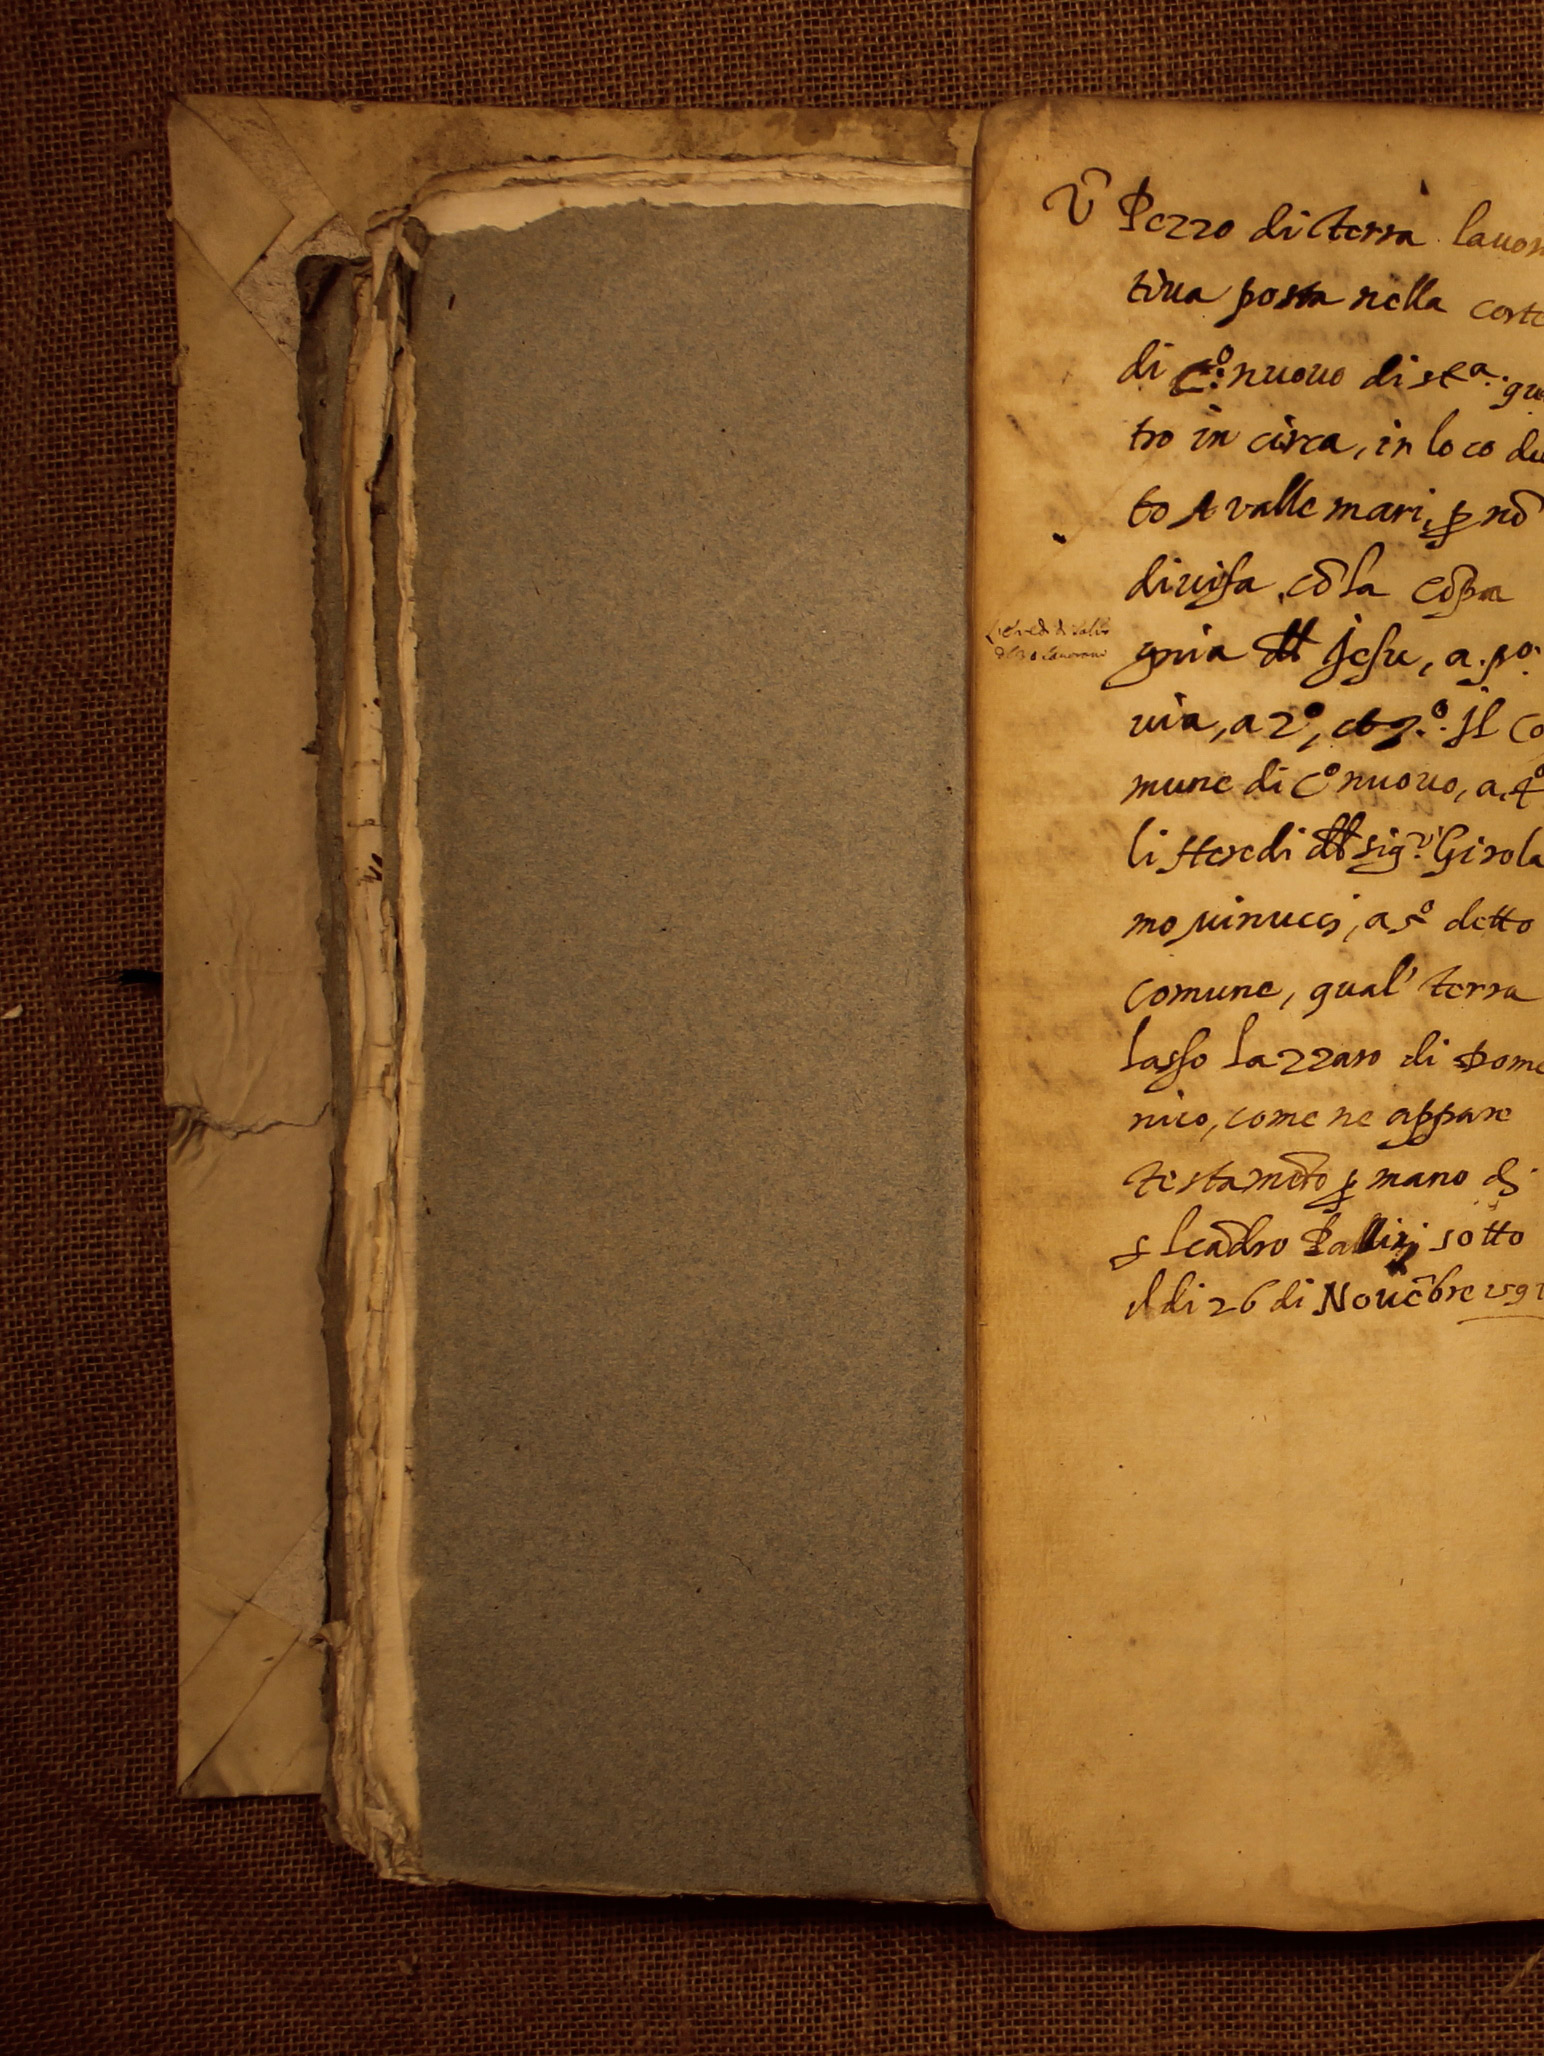 Ū Pezzo di terra lauor
tiua posta nella corte
di C.º nuouo di st.ª qua
tro in circa, in loco det
to A valle mari, p nō
diuisa, cō la cōpa
gnia del Jesu, a p.º
uia, a 2º, et 3.º il Co
mune di Cº nuouo, a 4º
li Heredi del sig.r Girola
mo uinucci, a 5º detto
comune, qual' terra
lasso lazzaro di Dome
nico, come ne appare
testamēto p mano di
s Leādro Pallini sotto
il di 26 di Nouēbre 159